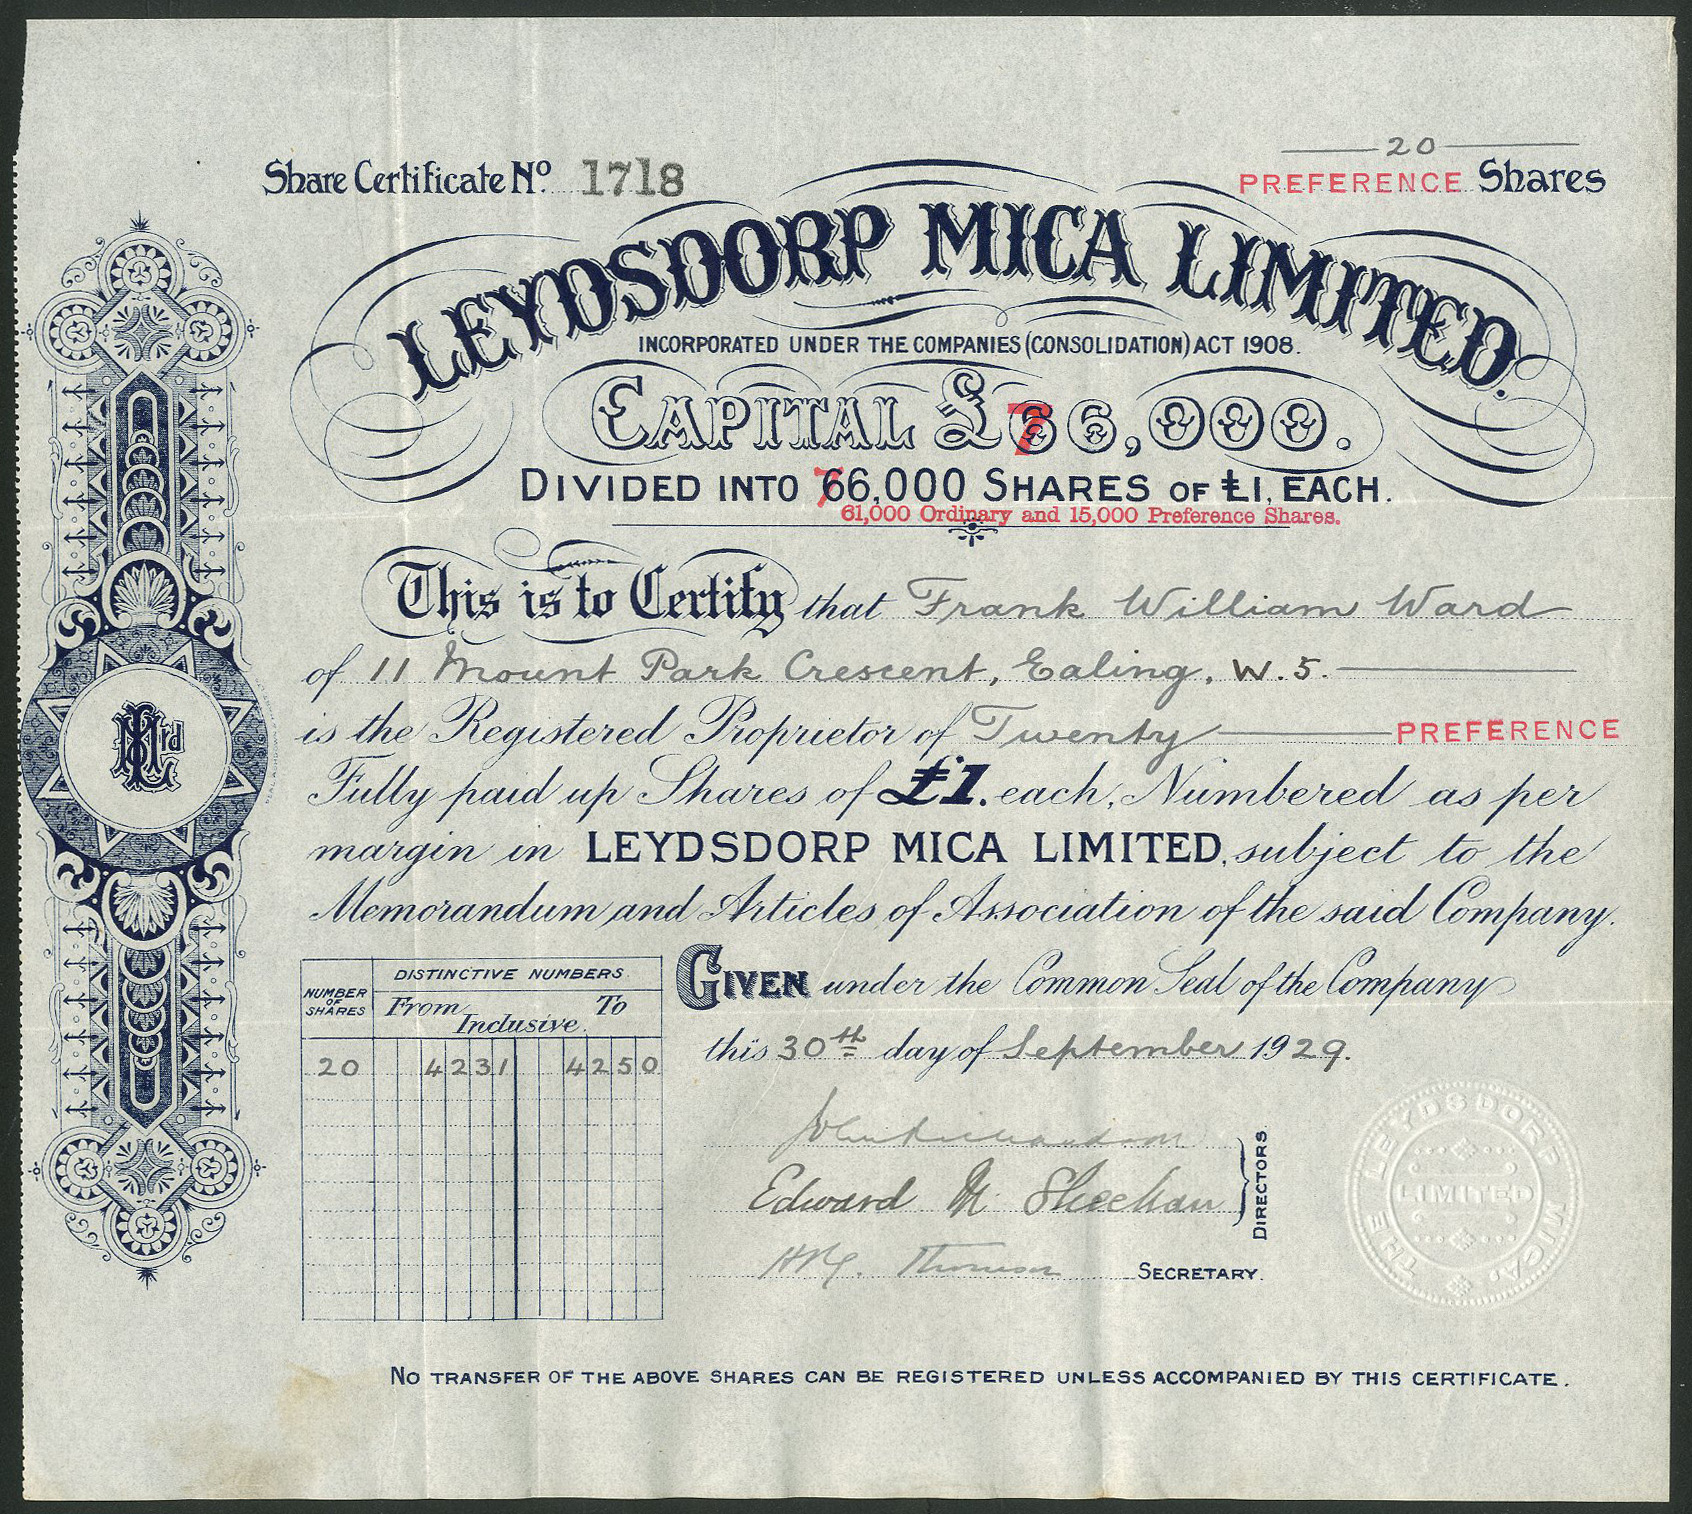 Share Certificate No. 1718
20
PREFERENCE Shares
LEYDSDORP MICA LIMITED.
INCORPORATED UNDER THE COMPANIES (CONSOLIDATION) ACT 1908.
CAPITAL £76,000.
DIVIDED INTO 76,000 SHARES OF £1, EACH.
61,000 Ordinary and 15,000 Preference Shares.
This is to Certify that Frank William Ward
of 11 Mount Park Crescent, Ealing, W.5.
is the Registered Proprietor of Twenty PREFERENCE
Fully paid up Shares of £1. each, Numbered as per
margin in LEYDSDORP MICA LIMITED, subject to the
Memorandum and Articles of Association of the said Company.
GIVEN under the Common Seal of the Company
this 30th day of September 1929.
NUMBER OF SHARES
DISTINCTIVE NUMBERS
From To
Inclusive.
20 4231 4250
John Richardson
Edward M. Sheehan
DIRECTORS
Thomson
SECRETARY.
THE LEYDSDORP MICA
LIMITED
NO TRANSFER OF THE ABOVE SHARES CAN BE REGISTERED UNLESS ACCOMPANIED BY THIS CERTIFICATE.